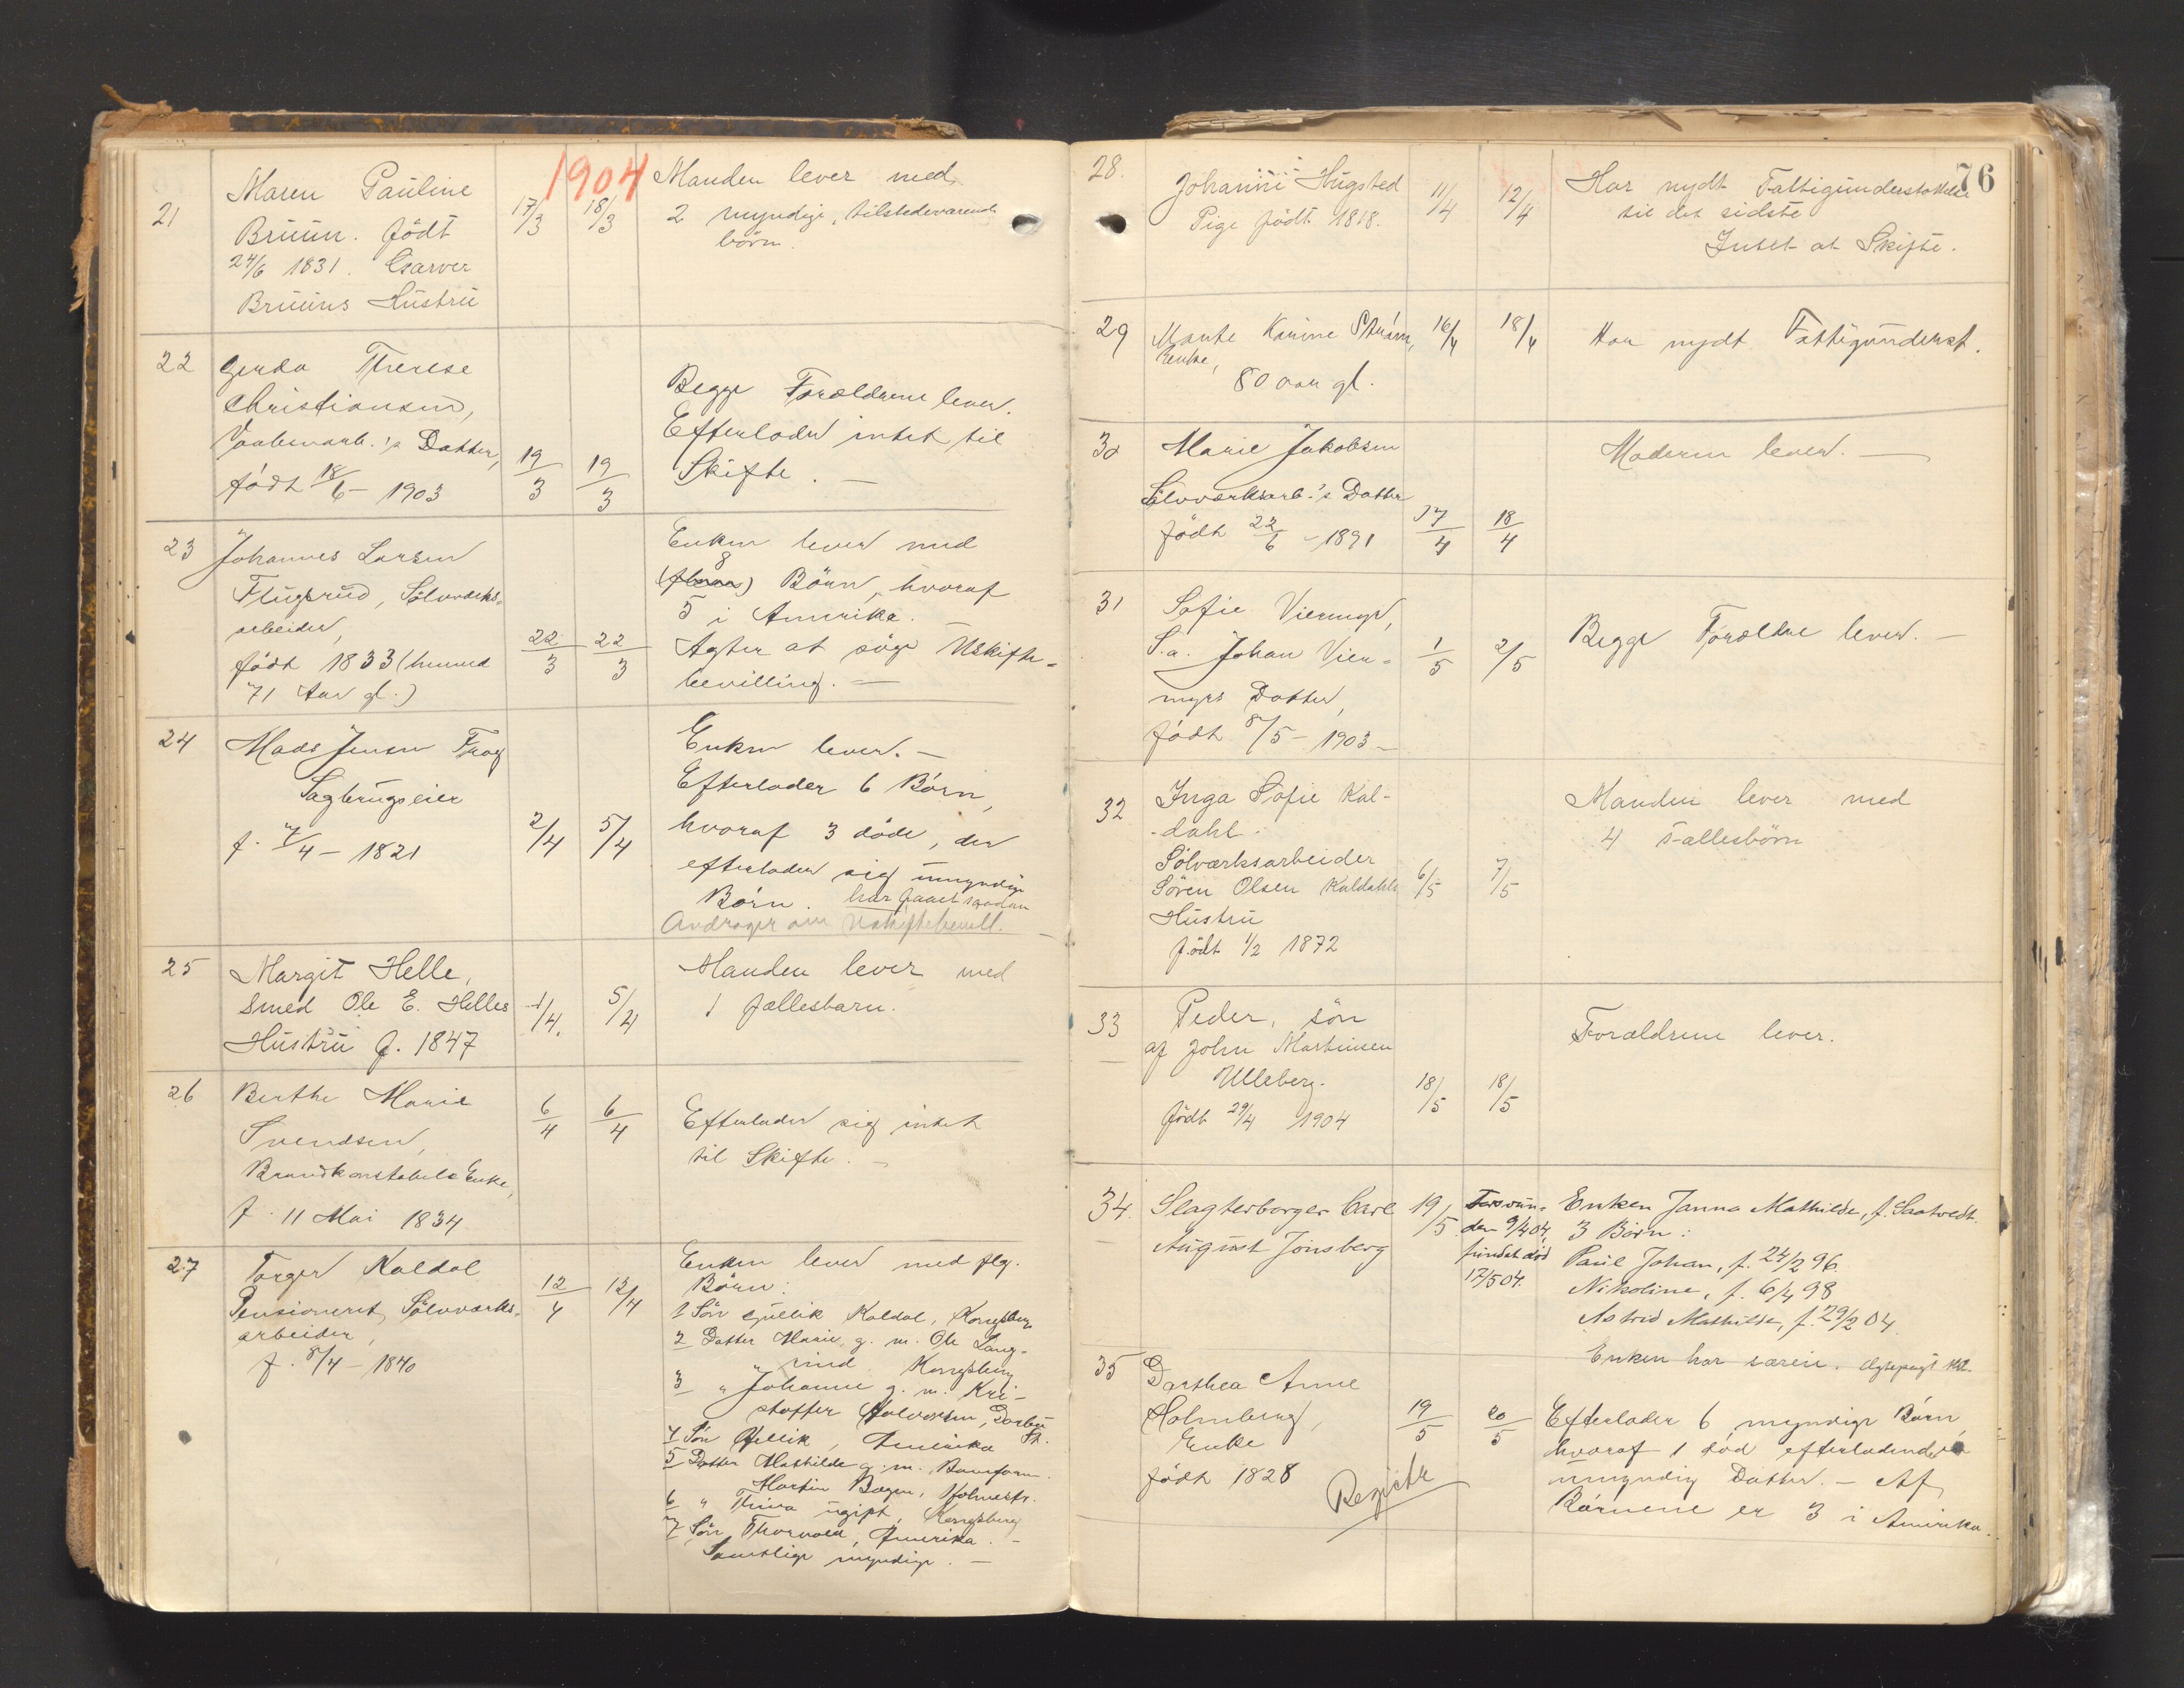 1904
21
Maren Pauline
Bruun. født
24/6 1831. Garver
Bruuns Hustru
17/3
18/3
Manden lever med
2 myndige, tilstedeværende
børn.
22
Gerda Therese
Christiansen,
Vaabenarb.'s Datter,
født 18/6 - 1903
19/3
19/3
Begge Forældrene lever.
Efterlader intet til
Skifte. —
23
Johannes Larsen
Flugsrud, Sølvværks-
arbeider,
født 1833 (henved
71 Aar gl.)
22/3
22/3
Enken lever med
8
Børn, hvoraf
5 i Amerika.
Agter at søge Uskifte-
bevilling. —
24
Mads Jensen
Sagbrugseier
f. 4/4 - 1821
2/4
5/4
Enken lever. —
Efterlader 6 Børn,
hvoraf 3 døde, der
efterlader sig umyndige
Børn. har faaet saadan
Andrager om Uskiftebevill.
25
Margit Helle,
Smed Ole E. Helles
Hustru f. 1847
1/4.
5/4
Manden lever med
1 fællesbarn.
26
Berthe Marie
Svendsen,
Brandkonstabels Enke,
f. 11 Mai 1834
6/4
6/4
Efterlader sig intet
til Skifte. —
27
Torger Kaldal
Pensioneret Sølvværks-
arbeider,
f. 8/4 - 1840
12/4
12/4
Enken lever med flg.
Børn:
1 Søn Gullik Kaldal, Kongsberg
2 Datter Marie, g. m. Ole Lang-
rud. Kongsberg
3 " Johanne g. m. Kri-
stoffer Halvorsen,
4 Søn Gullik, Amerika
5 Datter Mathilde g. m.
Martin Bagen, Holmestr.
6 " Thina ugift, Kongsberg
7 Søn Thorvald, Amerika. -
Samtlige myndige. —
76
28.
Johanne Hugsted
Pige født 1818.
11/4
12/4
Har nydt Fattigunderstøttelse
til det sidste
Intet at Skifte.
29
Marte Karine Strøm,
Enke,
80 aar gl.
16/4
18/4
Har nydt Fattigunderst.
30
Marie Jakobsen
Sølvværksarb.'s Datter
født 22/6 - 1891
17/4
18/4
Moderen lever. —
31
Sofie Viermyr,
S.a. Johan Vier-
myrs Datter,
født 8/5 - 1903 -
1/5
2/5
Begge Forældre lever. —
32
Inga Sofie Kal-
dahl.
Sølværksarbeider
Søren Olsen Kaldahls
Hustru
født 1/2 1872
6/5
7/5
Manden lever med
4 Fællesbørn
33
Peder, søn
af John Martinsen
Ulleberg.
født 29/4 1904
18/5
18/5
Forældrene lever.
34.
Slagterborger Carl
August Jonsberg
19/5
Forsvun-
den 9/4 04,
fundet død
17/5 04.
Enken Janna Mathilde, f. Saatvedt.
3 Børn:
Paul Johan, f. 24/2 96.
Nikoline, f. 6/4 98
Astrid Mathilde, f. 29/2 04.
Enken har særeie.
35
Dorthea Anne
Holmberg,
Enke
født 1828
19/5
20/5
Efterlader 6 myndige Børn,
hvoraf 1 død efterladende
umyndig Datter. — Af
Børnene er 3 i Amerika.